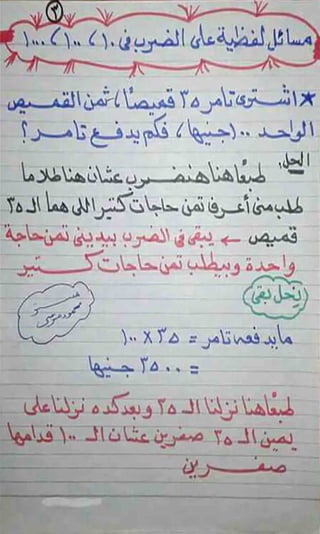 ٣
مسائل لفظية على الضرب فى ١٠، ١٠٠، ١٠٠٠
* اشترى تامر ٣٥ قميصًا، ثمن القميص
الواحد ١٠٠ جنيها، فكم يدفع تامر؟
الحل: طبعًا هنا هنضرب عشان هنا طلاما
طلب منى أعرف تمن حاجات كتير اللى هما الـ ٣٥
قميص ← يبقى فى الضرب بيدينى تمن حاجة
واحدة وبيطلب تمن حاجات كتير
يَحل بقى
مايدفعه تامر = ٣٥ × ١٠٠
= ٣٥٠٠ جنيها
طبعًا هنا نزلنا الـ ٣٥ وبعد كده نزلنا على
يمين الـ ٣٥ صفرين عشان الـ ١٠٠ قدامها
صفرين